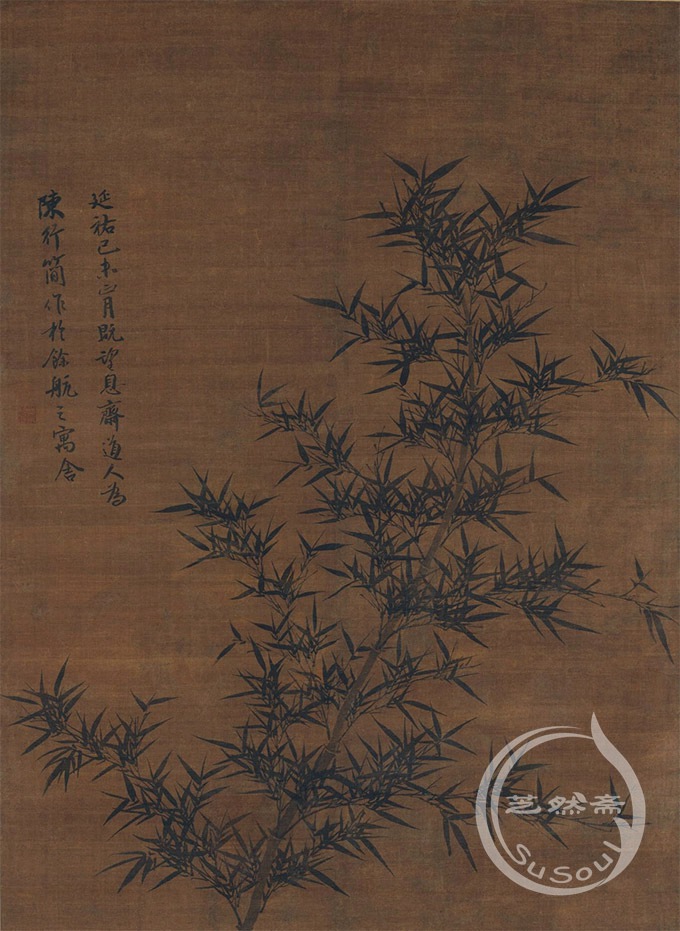 延祐己未正月既望息齋道人為
陳行簡作於餘杭之寓舍
芝然斋
SuSoul